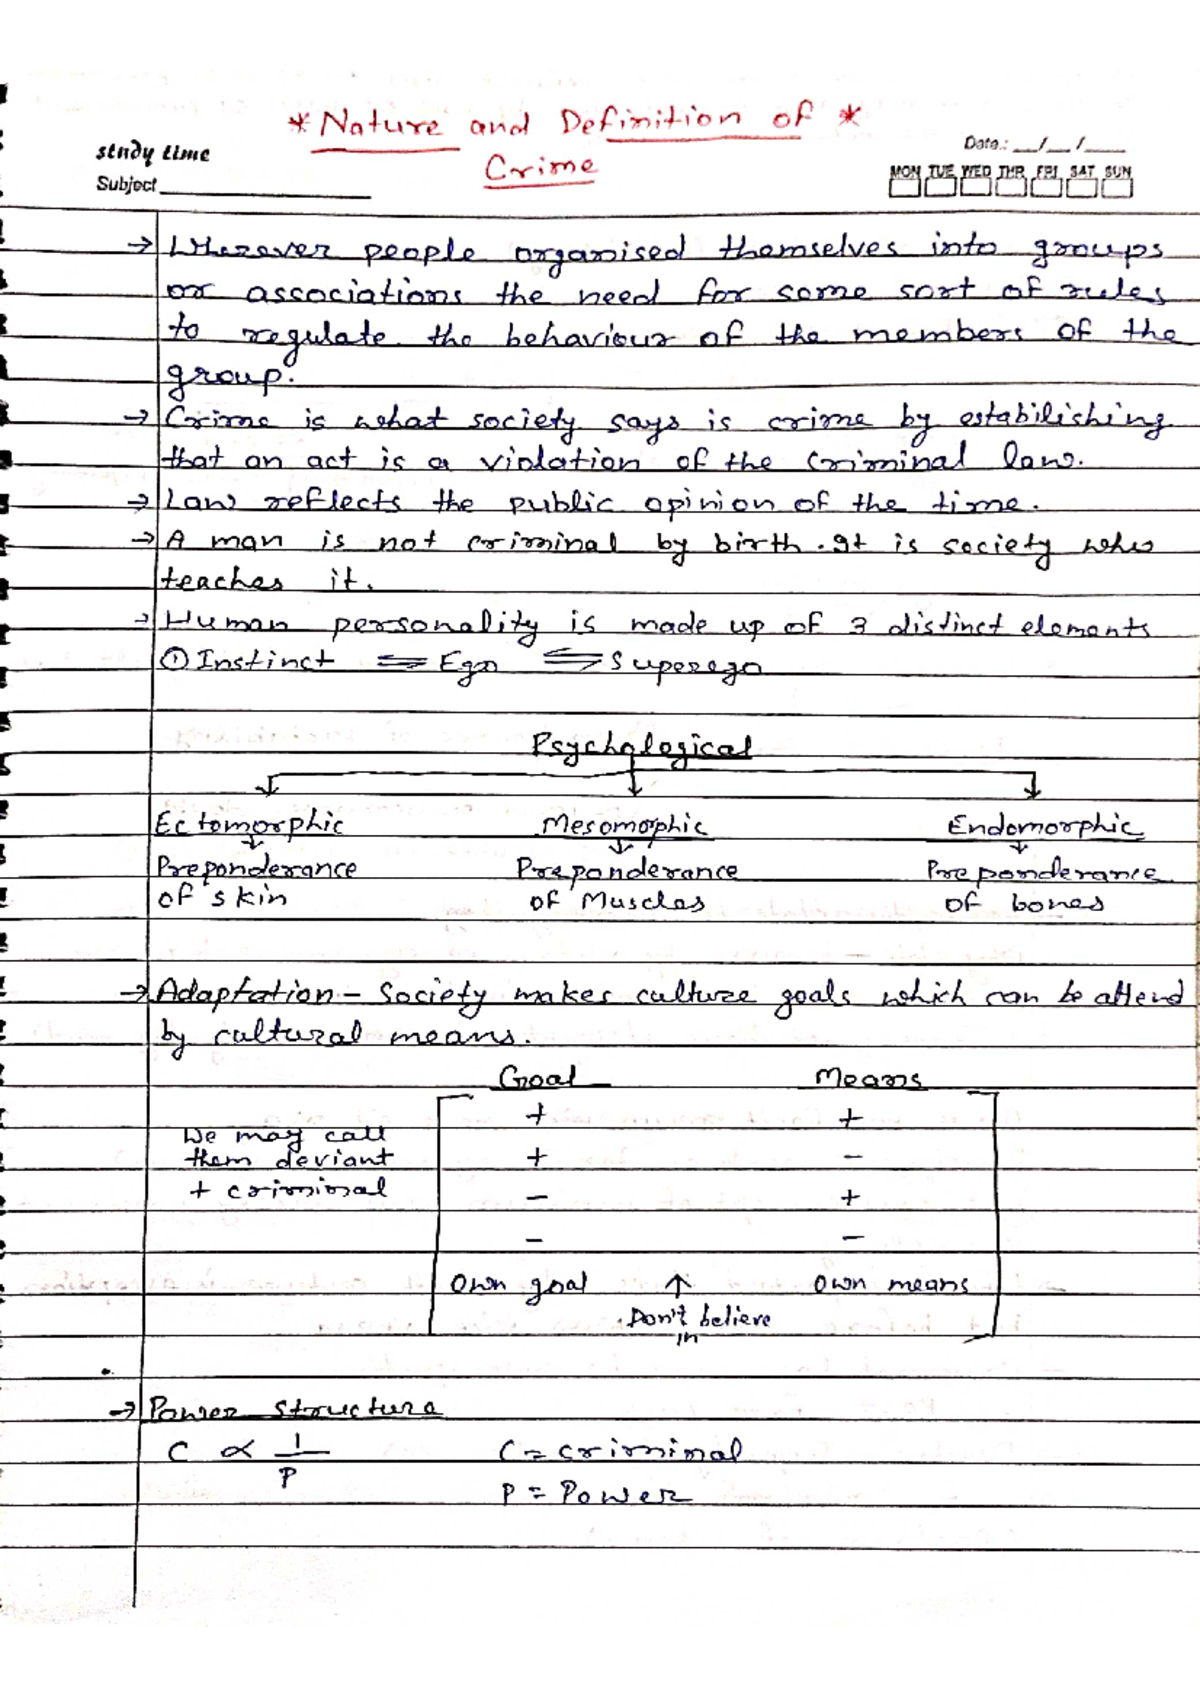 * Nature and Definition of *
Crime
study time
Subject
Date.: __/__/__
MON TUE WED THR FRI SAT SUN
→ Wherever people organised themselves into groups
or associations the need for some sort of rules
to regulate the behaviour of the members of the
group.
→ Crime is what society says is crime by estabilishing
that an act is a violation of the criminal law.
→ Law reflects the public opinion of the time.
→ A man is not criminal by birth. It is society who
teaches it.
→ Human personality is made up of 3 distinct elements
① Instinct ⇌ Ego ⇌ Superego
Psychological
Ectomorphic Mesomorphic Endomorphic
Preponderance Preponderance Preponderance
of skin of Muscles of bones
→ Adaptation - Society makes culture goals which can be attend
by cultural means.
Goal Means
+ +
We may call
them deviant + -
+ criminal - +
- -
Own goal ↑ Own means
Don't believe
in
→ Power structure
C ∝ 1/P C = criminal
P = Power